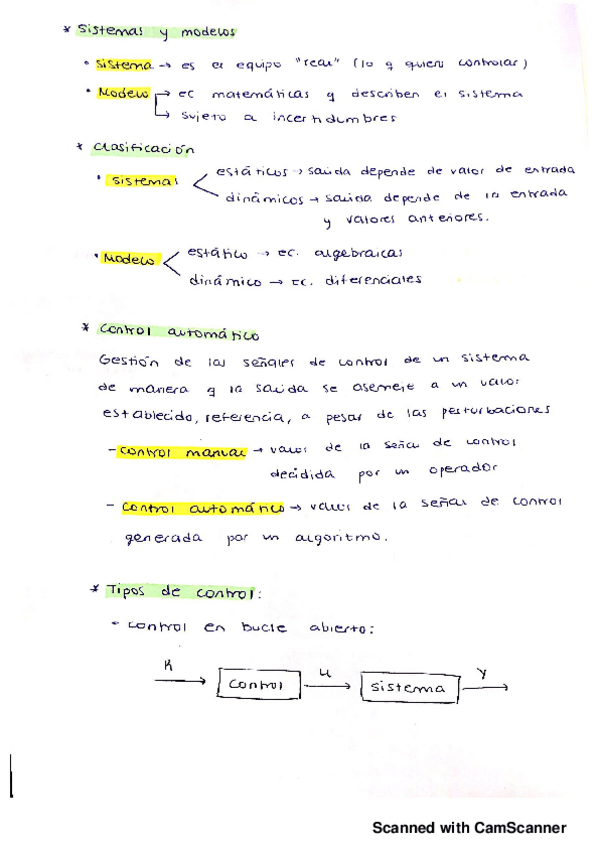 * Sistemas y modelos
• Sistema → es el equipo "real" (lo q quiero controlar)
• Modelo → ec matemáticas q describen el sistema
→ sujeto a incertidumbres
* Clasificación
• Sistemas
estáticos → salida depende de valor de entrada
dinámicos → salida depende de la entrada
y valores anteriores.
• Modelo
estático → ec. algebraicas
dinámico → ec. diferenciales
* Control automático
Gestión de las señales de control de un sistema
de manera q la salida se asemeje a un valor
establecido, referencia, a pesar de las perturbaciones
- control manual → valor de la señal de control
decidida por un operador
- control automático → valor de la señal de control
generada por un algoritmo.
* Tipos de control:
- control en bucle abierto:
R
control
u
sistema
y
Scanned with CamScanner